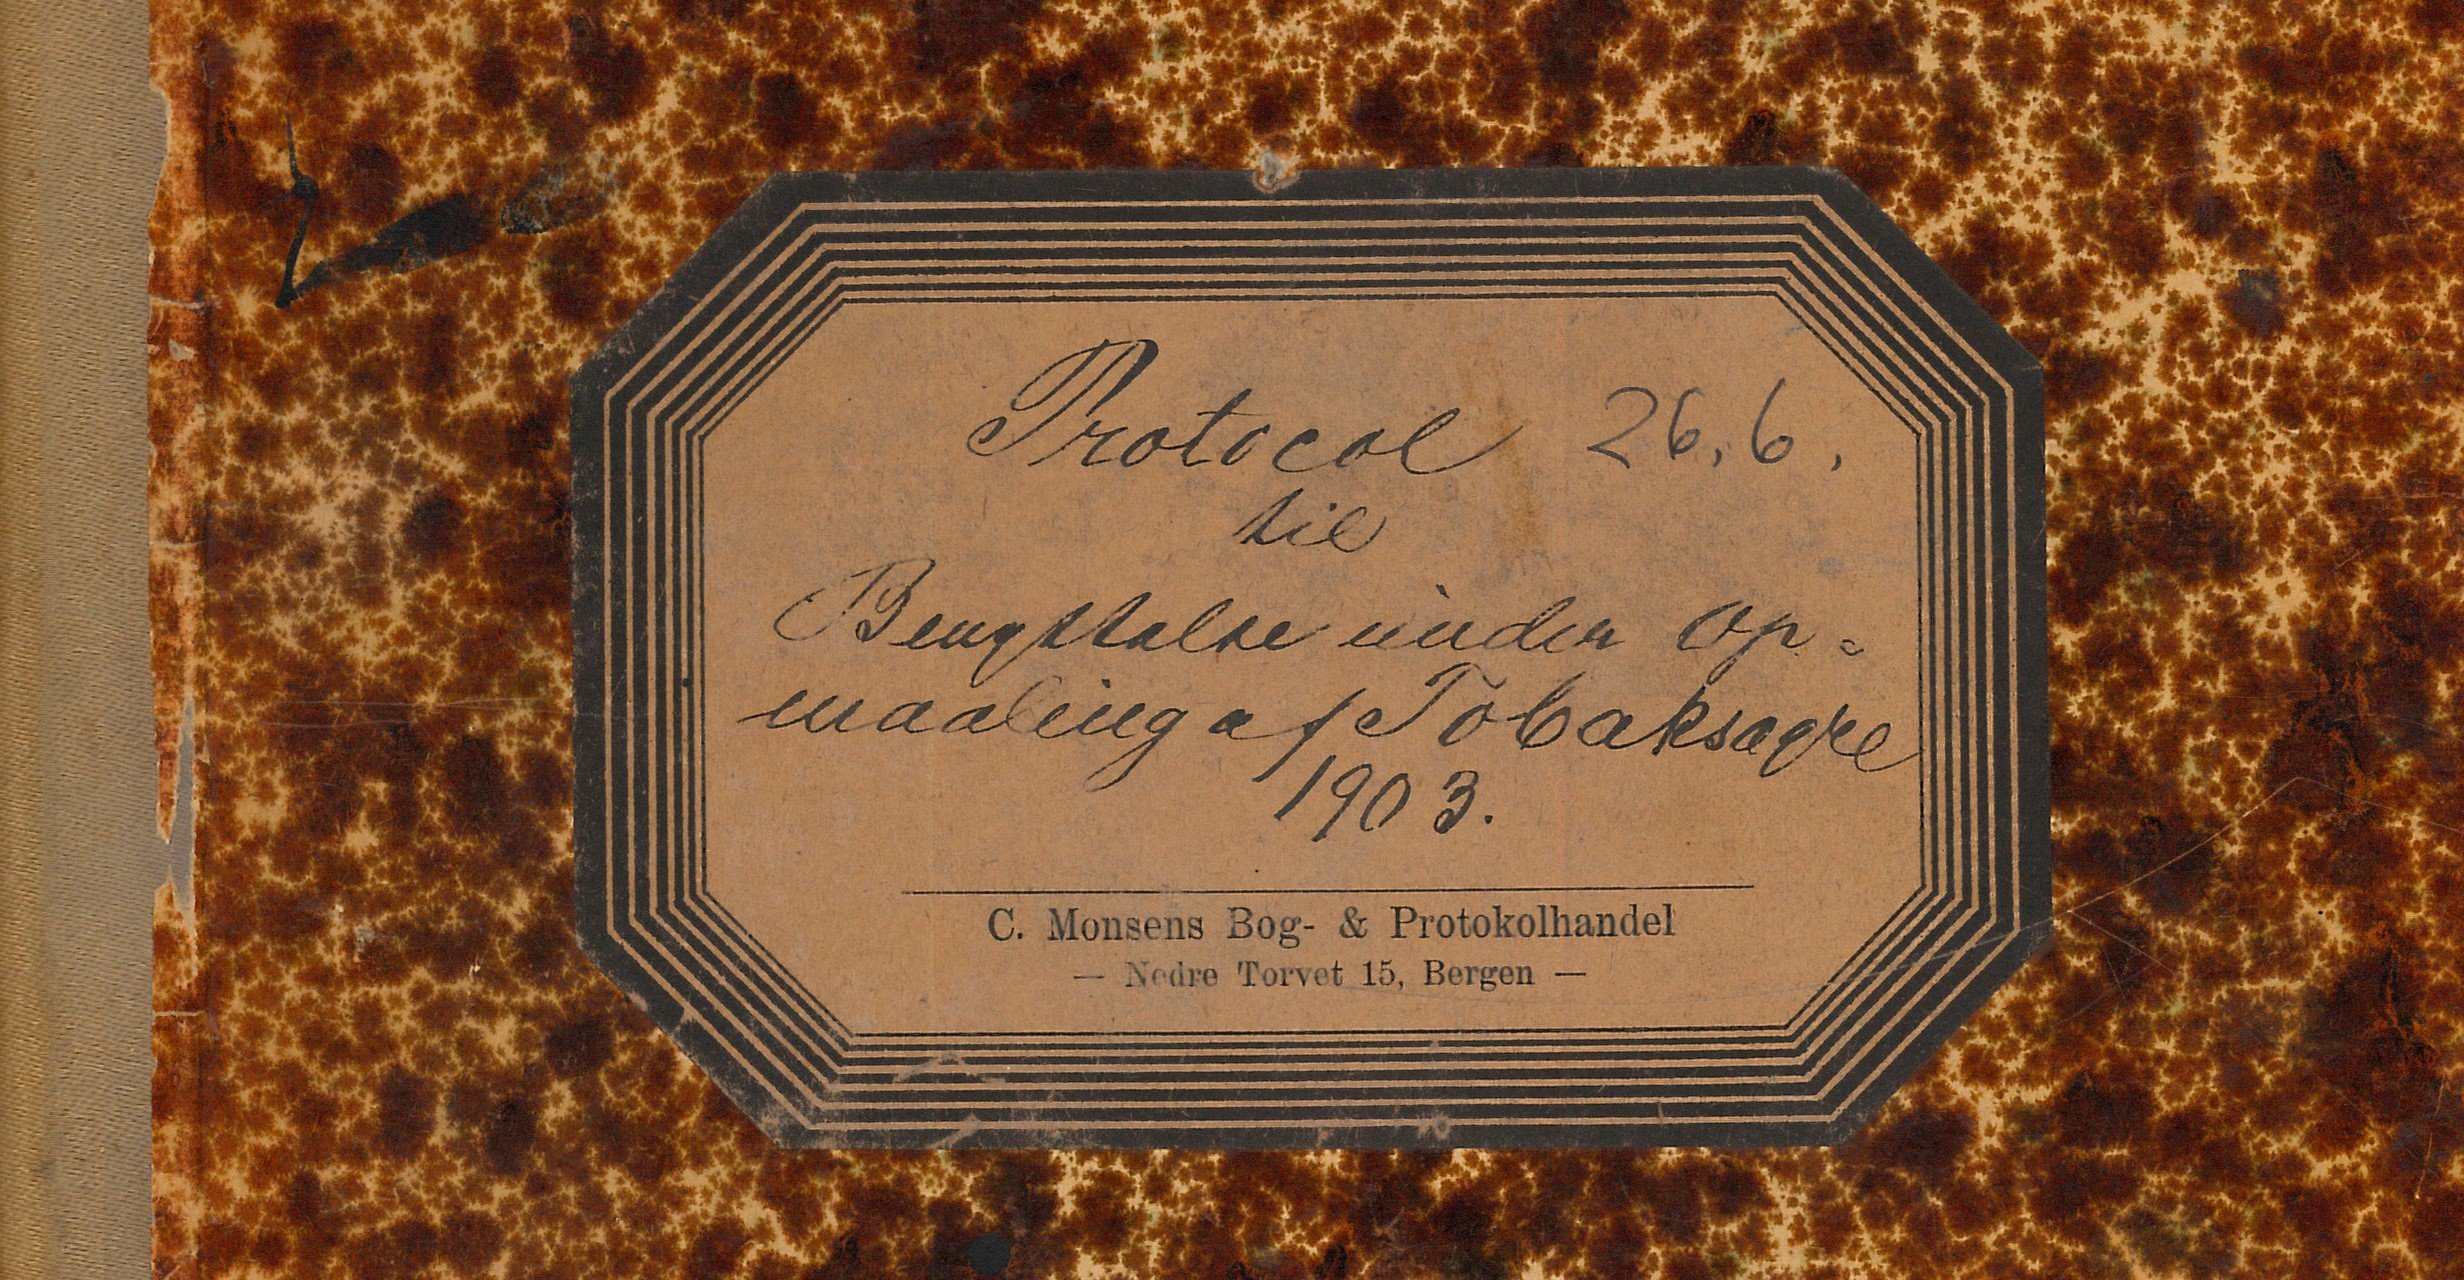 Protocol 26.6.
til
Benyttelse under Op=
maaling af Tobaksagre
1903.
C. Monsens Bog- & Protokolhandel
— Nedre Torvet 15, Bergen —